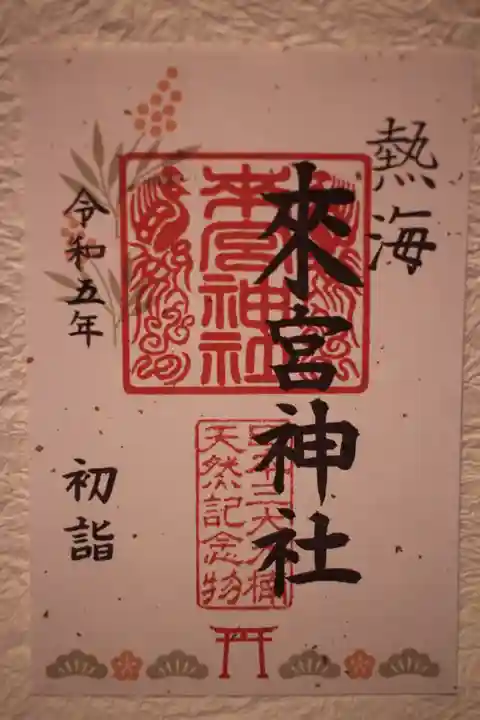 熱海
來宮神社
來宮神社
日本三大大楠
天然記念物
令和五年
初詣